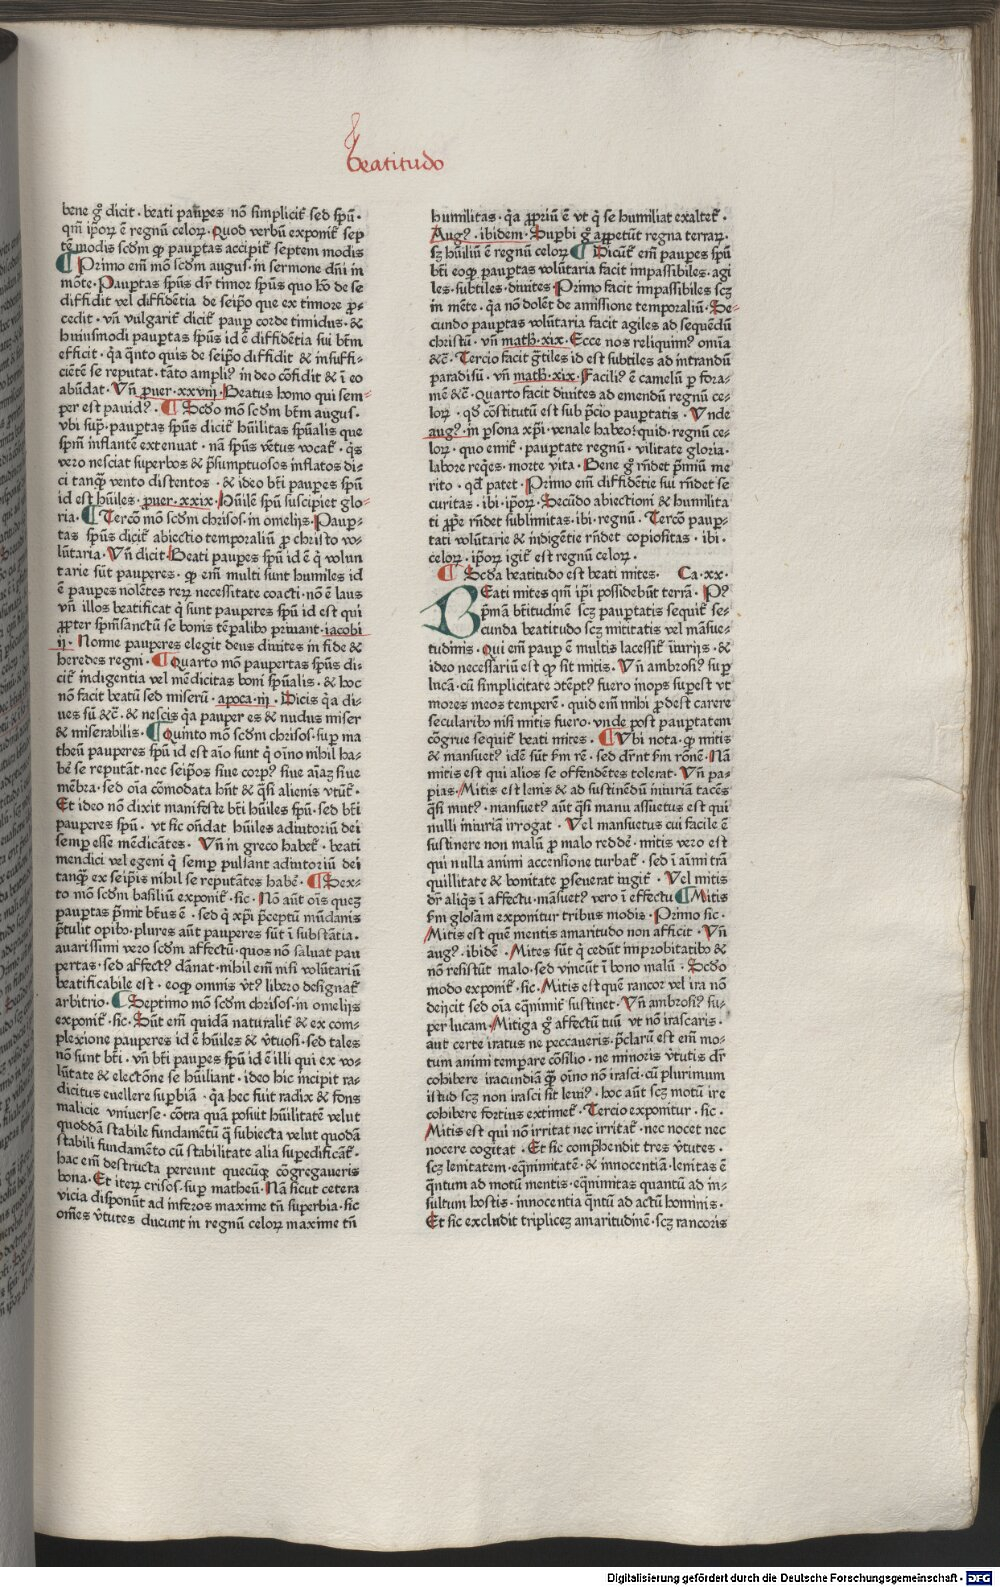 beatitudo
bene gͦ dicit · beati paup̲es nō simplicit̄ sed sp̄u ·
qm̄ ip̄oꝝ ē regnū celoꝝ · Quod verbū exponit̄ sep
tē modis scd̄m ꝙ paup̲tas accipit̄ septem modis
¶ Primo em̄ mō scd̄m augus · in sermone dn̄i in
mōte · Paup̲tas sp̄us dr̄ timor sp̄us quo hō de se
diffidit vel diffidētia de seip̄o que ex timore ꝓ-
cedit · vn̄ vulgarit̄ dicit̄ paup̲ corde timidus · &
huiusmodi paup̲tas sp̄us id ē diffidētia sui btm̄
efficit · qa qn̄to quis de seip̄o diffidit & insuffi-
ciētē se reputat · tāto ampliꝰ in deo cōfidit & ī eo
abūdat · Vn̄ ꝓuer · xxviij · Beatus homo qui sem-
per est pauidꝰ · ¶ Scd̄o mō scd̄m btm̄ augus ·
vbi sup̲ · paup̲tas sp̄us dicit̄ hūilitas sp̄ualis que
sp̄m̄ inflantē extenuat · nā sp̄us vētus vocat̄ · qs̄
vero nesciat superbos & p̄sumptuosos inflatos di-
ci tanqꝫ vento distentos · & ideo bt̄i paup̲es sp̄u
id est hūiles · ꝓuer · xxix · Hūilē sp̄u suscipiet glo-
ria · ¶ Tercō mō scd̄m chrisos · in omelijs · Paup̲-
tas sp̄us dicit̄ abiectio temporaliū ꝓ christo vo-
lūtaria · Vn̄ dicit · Beati paup̲es sp̄u id ē q̄ volun
tarie sūt pauperes · ꝙ em̄ multi sunt humiles id
ē paup̲es nolētes reꝝ necessitate coacti · nō ē laus
vn̄ illos beatificat q̄ sunt pauperes sp̄u id est qui
ꝓpter sp̄m̄sanctū se bonis tēp̲alibꝰ priuant · iacobi
ij · Nonne pauperes elegit deus diuites in fide &
heredes regni · ¶ Quarto mō paup̲tas sp̄us di-
cit̄ indigentia vel mēdicitas boni sp̄ualis · & hoc
nō facit beatū sed miserū · apoca · iij · Dicis qa di-
ues sū &c̄ · & nescis qa pauper es & nudus miser
& miserabilis · ¶ Quinto mō scd̄m chrisos · sup̲ ma
theū pauperes sp̄u id est aīo sunt q̄ oīno nihil ha-
bē se reputāt · nec seip̄os siue corpꝰ siue aīaꝫ siue
mēbra · sed oīa cōmodata hn̄t & qs̄i alienis vtūt̄ ·
Et ideo nō dixit manifeste bt̄i hūiles sp̄u · sed bt̄i
pauperes sp̄u · vt sic on̄dat hūiles adiutoriū dei
semp̲ esse mēdicātes · Vn̄ in greco habet̄ · beati
mendici vel egeni q̄ semp̲ pulsant adiutoriū dei
tanqꝫ ex seip̄is nihil se reputātes habē · ¶ Sex-
to mō scd̄m basiliū exponit̄ · sic · Nō aūt oīs queꝫ
paup̲tas p̄mit bt̄us ē · sed q̄ xp̄i p̄ceptū mūdanis
p̄tulit opibꝰ · plures aūt pauperes sūt ī substātia ·
auarissimi vero scd̄m affectū · quos nō saluat pau
pertas · sed affectꝰ dānat · nihil em̄ nisi volūtariū
beatificabile est · eoqꝫ omnis vtꝰ libero designat̄
arbitrio · ¶ Septimo mō scd̄m chrisos · in omelijs
exponit̄ · sic · Sūt em̄ quidā naturalit̄ & ex com-
plexione pauperes id ē hūiles & v̄tuosi · sed tales
nō sunt bt̄i · vn̄ bt̄i paup̲es sp̄u id ē illi qui ex vo-
lūtate & electōne se hūiliant · ideo hic incipit ra-
dicitus euellere sup̲biā · qa hec fuit radix & fons
malicie vniuerse · cōtra quā posuit hūilitatē velut
quoddā stabile fundamētū q̄ subiecta velut quodā
stabili fundamēto cū stabilitate alia sup̲edificāt̄ ·
hac em̄ destructa pereunt quecūqꝫ cōgregaueris
bona · Et iteꝝ crisos · sup̲ matheū · Nā sicut cetera
vicia disponūt ad inferos maxime tn̄ superbia · sic
om̄es v̄tutes ducunt in regnū celoꝝ maxime tn̄
humilitas · qa ꝓpriū ē vt q̄ se humiliat exaltet̄ ·
Augꝰ · ibidem · Sup̲bi gͦ appetūt regna terraꝝ ·
sꝫ hūiliū ē regnū celoꝝ ¶ Dicūt̄ em̄ paup̲es sp̄u
bt̄i eoqꝫ paup̲tas volūtaria facit impassibiles · agi
les · subtiles · diuites · Primo facit impassibiles scꝫ
in mēte · qa nō dolēt de amissione temporaliū · Se-
cundo paup̲tas volūtaria facit agiles ad sequēdū
christū · vn̄ math · xix · Ecce nos reliquimꝰ omīa
&c̄ · Tercio facit g̅tiles id est subtiles ad intrandū
paradisū · vn̄ math · xix · Faciliꝰ ē camelū p̲ fora-
mē &c̄ · Quarto facit diuites ad emendū regnū ce-
loꝝ · qd̄ cōstitutū est sub p̄cio paup̲tatis · Vnde
augꝰ · in p̲sona xp̄i · venale habeo · quid · regnū ce-
loꝝ · quo emit̄ · paup̲tate regnū · vilitate gloria ·
labore reqes · morte vita · Bene gͦ rn̄det p̄miū me
rito · qd̄ patet · Primo em̄ diffidētie sui rn̄det se
curitas · ibi · ip̄oꝝ · Secūdo abiectioni & humilita
ti ꝓp̄e rn̄det sublimitas · ibi · regnū · Tercō paup̲-
tati volūtarie & indigētie rn̄det copiositas · ibi ·
celoꝝ · ip̄oꝝ igit̄ est regnū celoꝝ ·
¶ Scd̄a beatitudo est beati mites · Ca · xx ·
BEati mites qm̄ ip̄i possidebūt terrā · Pꝰ
p̄mā bt̄itudinē scꝫ paup̲tatis sequit̄ se-
cunda beatitudo scꝫ mititatis vel māsue-
tudinis · Qui em̄ paup̲ ē multis lacessit̄ iniurijs · &
ideo necessariū est ꝙ sit mitis · Vn̄ ambrosiꝰ sup̲
lucā · cū simplicitate ↄtēptꝰ fuero inops sup̲est vt
mores meos temperē · quid em̄ mihi ꝓdest carere
secularibꝰ nisi mitis fuero · vnde post paup̲tatem
cōgrue sequit̄ beati mites · ¶ Vbi nota · ꝙ mitis
& mansuetꝰ idē sūt s̄m rē · sed dr̄nt s̄m rōnē · Nā
mitis est qui alios se offendētes tolerat · Vn̄ pa-
pias · Mitis est lenis & ad sustinēdū iniuriā tacēs
qs̄i mutꝰ · mansuetꝰ aūt qs̄i manu assuetus est qui
nulli iniuriā irrogat · Vel mansuetus cui facile ē
sustinere non malū ꝓ malo reddē · mitis vero est
qui nulla animi accensione turbat̄ · sed ī aīmi trā
quillitate & bonitate p̲seuerat iugit̄ · Vel mitis
dr̄ aliqs ī affectu · māsuetꝰ vero ī effectu ¶ Mitis
s̄m glosam exponitur tribus modis · Primo sic ·
Mitis est quē mentis amaritudo non afficit · Vn̄
augꝰ · ibidē · Mites sūt q̄ cedūt improbitatibꝰ &
nō resistūt malo · sed vincūt ī bono malū · Scd̄o
modo exponit̄ · sic · Mitis est quē rancor vel ira nō
deijcit sed oīa eqnimit̄ sustinet · Vn̄ ambrosiꝰ su-
per lucam · Mitiga gͦ affectū tuū vt nō irascaris ·
aut certe iratus ne peccaueris · p̄clarū est em̄ mo-
tum animi temp̲are cōsilio · ne minoris v̄tutis dr̄
cohibere iracundiā qꝫ oīno nō irasci · cū plurimum
istud scꝫ non irasci sit leuiꝰ · hoc aūt scꝫ motū ire
cohibere fortius extimet̄ · Tercio exponitur · sic ·
Mitis est qui nō irritat nec irritat̄ · nec nocet nec
nocere cogitat · Et sic comp̄hendit tres v̄tutes ·
scꝫ lenitatem · eqnimitatē · & innocentiā · lenitas ē
qn̄tum ad motū mentis · eqnimitas quantū ad in-
sultum hostis · innocentia qn̄tū ad actū hominis ·
Et sic excludit tripliceꝫ amaritudinē · scꝫ rancoris
Digitalisierung gefördert durch die Deutsche Forschungsgemeinschaft - DFG